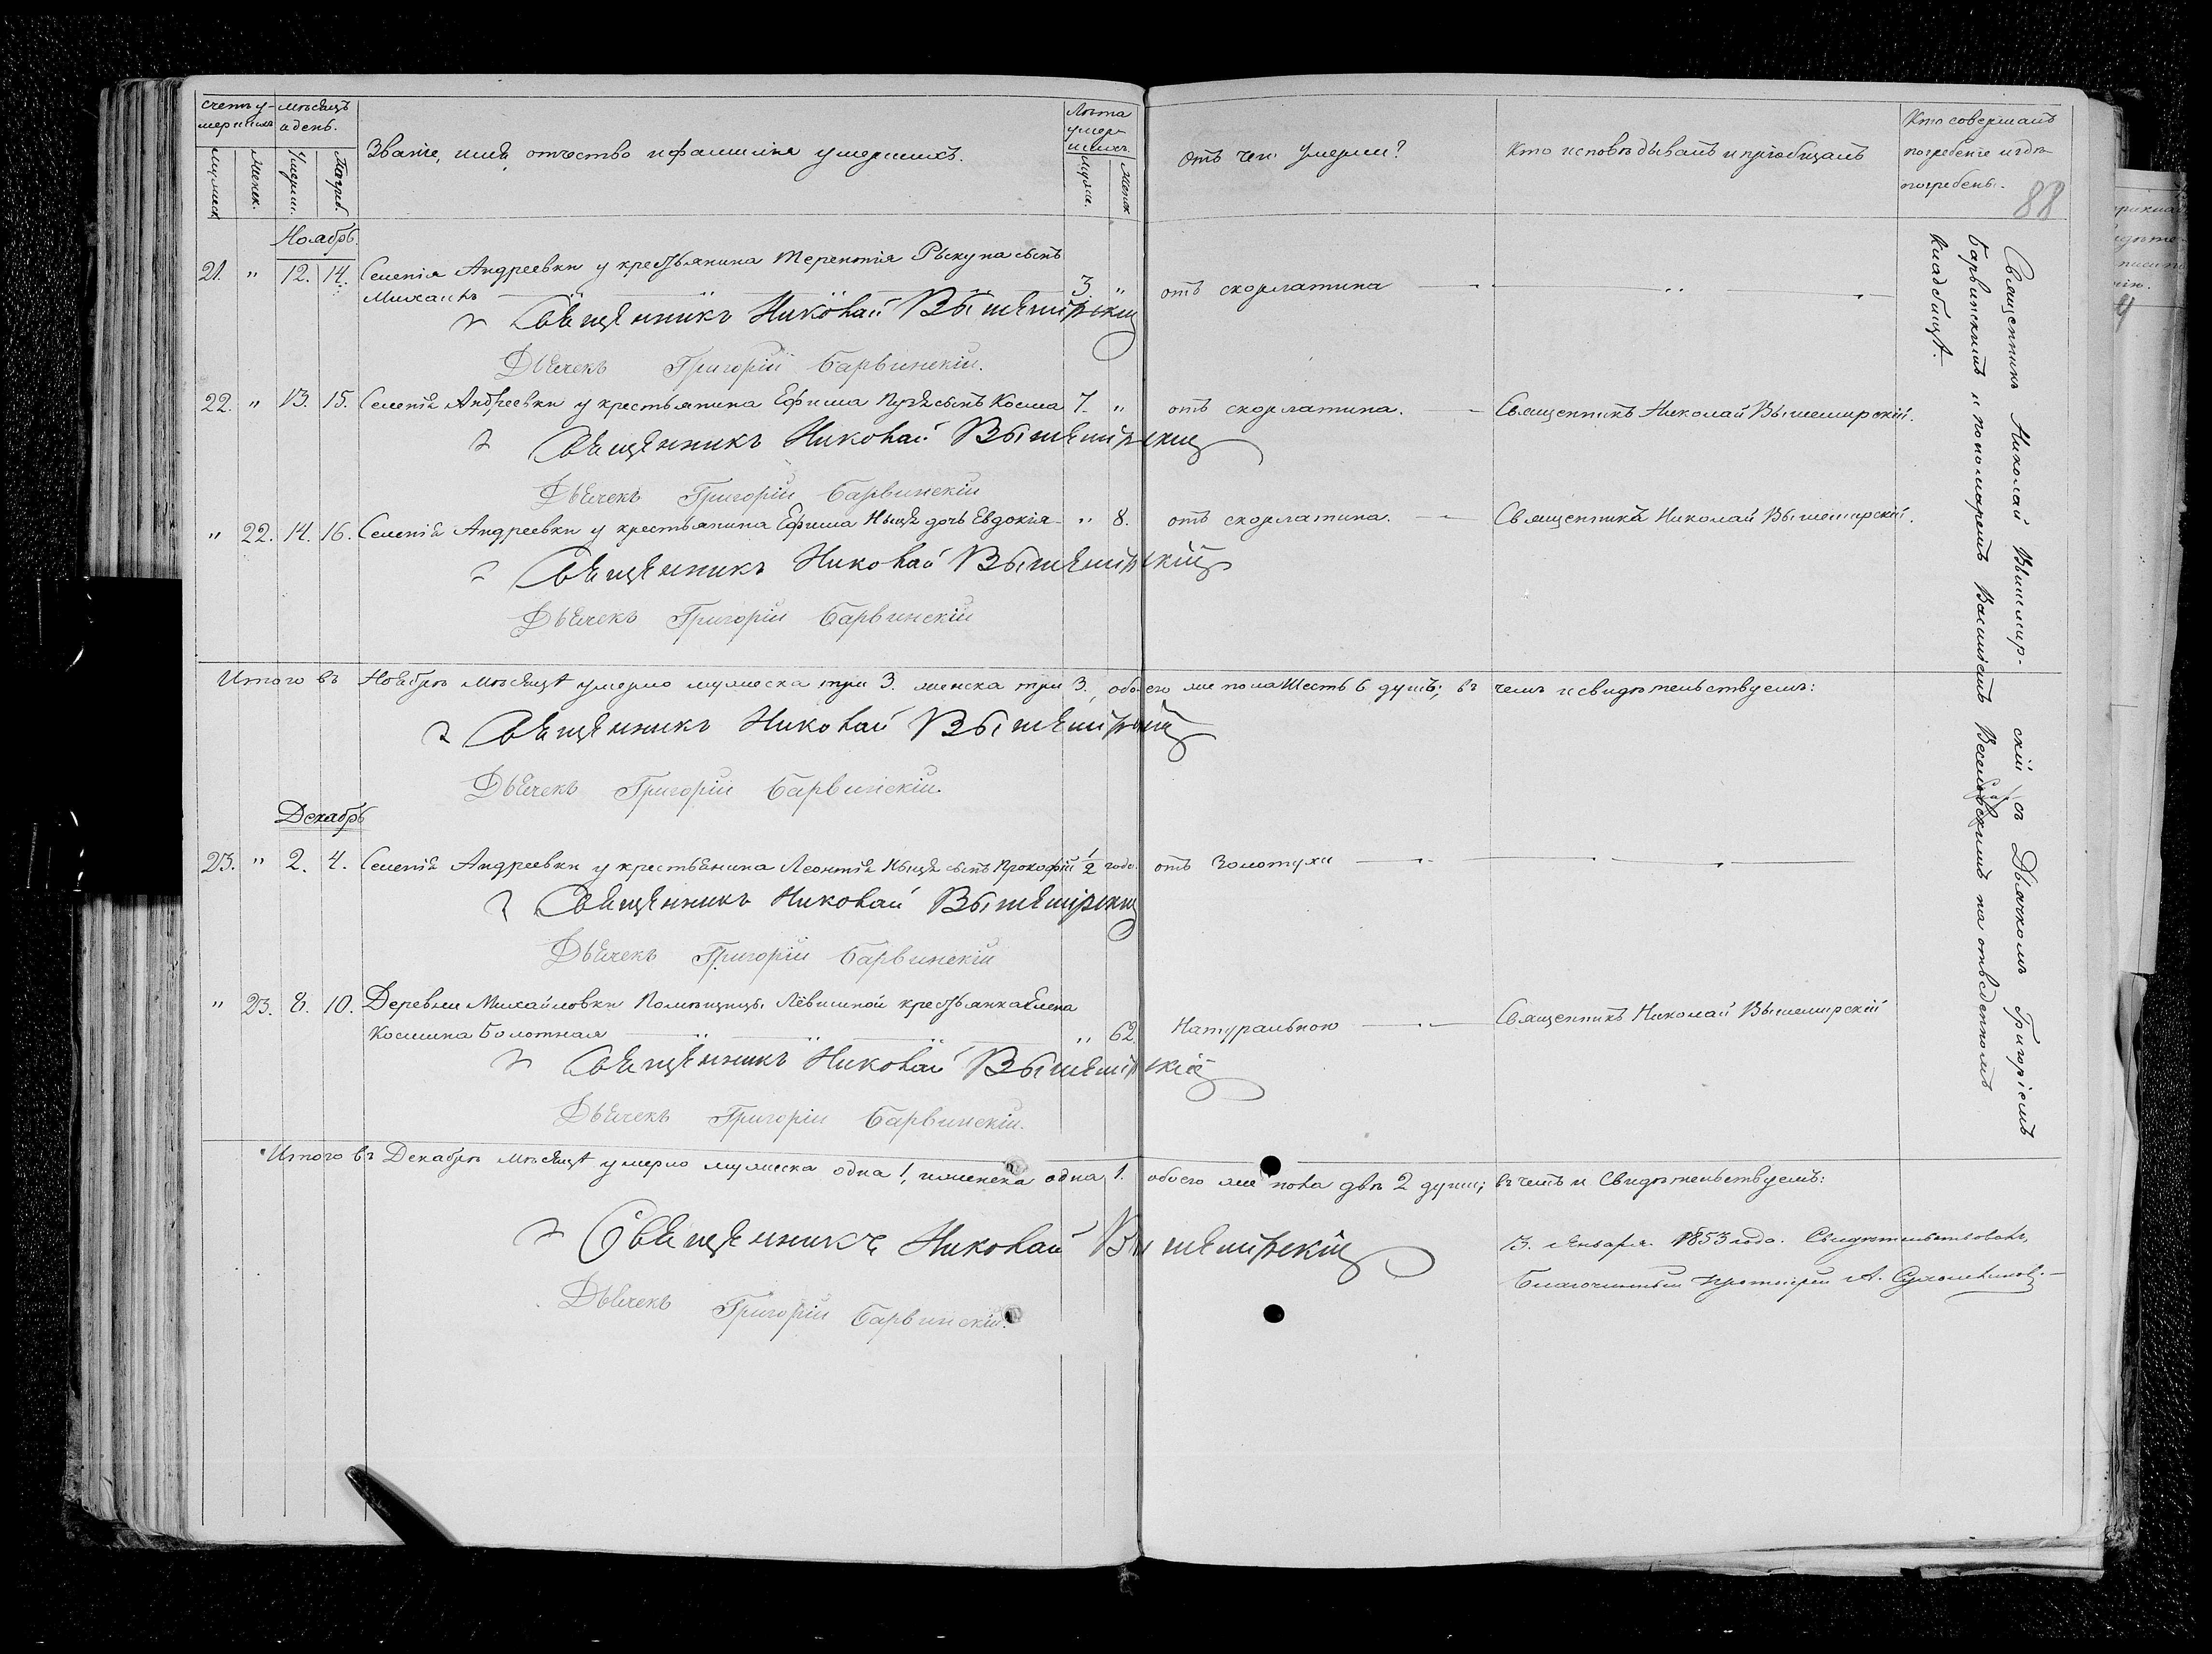 Счетъ у- мѣсяцъ
мершихъ и день.
Званіе, имя, отчество и фамилія умершихъ.
Лѣта
умер-
шихъ.
Отъ чего умерли?
Кто исповѣдывалъ и пріобщалъ
Кто совершалъ
погребеніе и гдѣ
погребены.
Мужеск.
Женск.
Умерш.
Погреб.
Мужес.
Женск.
88
Ноябрь
21. " 12. 14. Селенія Андреевки у крестьянина Терентія сынъ
Михаилъ 3 " отъ скорлатина
Священникъ Николай Вышемірскій
Дьячекъ Григорій Барвинскій.
22. " 13. 15. Селенія Андреевки у крестьянина Ефима сынъ Косма 7. " отъ скорлатина. Священникъ Николай Вышемирскій.
Священникъ Николай Вышемірскій
Дьячекъ Григорій Барвинскій
" 22. 14. 16. Селенія Андреевки у крестьянина Ефима дочь Евдокія " 8. отъ скорлатина. Священникъ Николай Вышемирскій.
Священникъ Николай Вышемірскій
Дьячекъ Григорій Барвинскій
Итого въ Ноябрѣ мѣсяцѣ умерло мужеска три 3. женска три 3., обоего же пола шесть 6 душъ; въ чемъ и свидѣтельствуемъ:
Священникъ Николай Вышемірскій
Дьячекъ Григорій Барвинскій.
Декабрь
23. " 2. 4. Селенія Андреевки у крестьянина Леонтія сынъ Прокофій 1/2 года. отъ Золотухи
Священникъ Николай Вышемірскій
Дьячекъ Григорій Барвинскій
" 23. 8. 10. Деревни Михайловки Помѣщицы Лёвшиной крестьянка Елена
Космина Болотная " 62. Натуральною Священникъ Николай Вышемирскій
Священникъ Николай Вышемірскій
Дьячекъ Григорій Барвинскій.
Итого въ Декабрѣ мѣсяцѣ умерло мужеска одна 1, женска одна 1. обоего же пола двѣ 2 души; въ чемъ и Свидѣтельствуемъ:
Священникъ Николай Вышемірскій
Дьячекъ Григорій Барвинскій.
13. Января 1853 года. Свидѣтельствовалъ
Благочинный Протоіерей А.
Священникъ Николай Вышемир- скій съ Дьячкомъ Григоріемъ
Барвинскимъ и пономаремъ Василіемъ на отведенномъ
кладбищѣ.